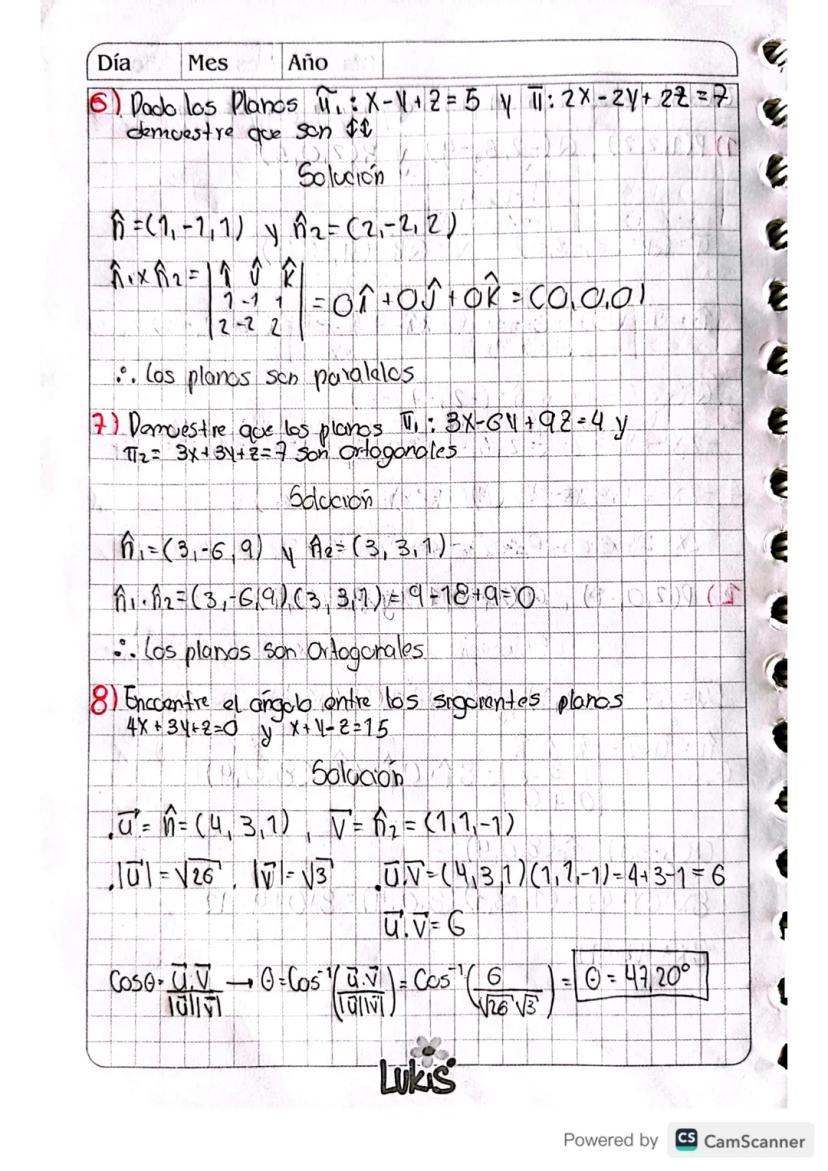 Día Mes Año
6) Dado los Planos π₁: X-Y+Z=5 y π: 2X-2Y+2Z=7
demuestre que son ⇕
Solución
n̂=(1,-1,1) y n̂2=(2,-2,2)
n̂₁x n̂2= | î ĵ k̂ |
1 -1 1
2 -2 2
= 0î+0ĵ+0k̂ = (0,0,0)
∴ Los planos son paralelos
7) Demuestre que los planos π₁: 3X-6Y+9Z=4 y
π2= 3x+3y+z=7 son ortogonales
Solución
n̂₁=(3,-6,9) y n̂2=(3,3,1)
n̂₁.n̂2=(3,-6,9).(3,3,1)=9-18+9=0
∴ Los planos son Ortogonales
8) Encuentre el ángulo entre los siguientes planos
4X+3Y+Z=0 y X+Y-Z=15
Solución
.u⃗=n̂=(4,3,1), V⃗=n̂2=(1,1,-1)
.|u⃗|=√26, |v⃗|=√3 .u⃗.v⃗=(4,3,1)(1,1,-1)=4+3-1=6
u⃗.v⃗=6
Cosθ= u⃗.v⃗/|u⃗||v⃗| → θ=Cos⁻¹(u⃗.v⃗/|u⃗||v⃗|)=Cos⁻¹(6/√26√3)= θ=47,20°
Lukis
Powered by CS CamScanner